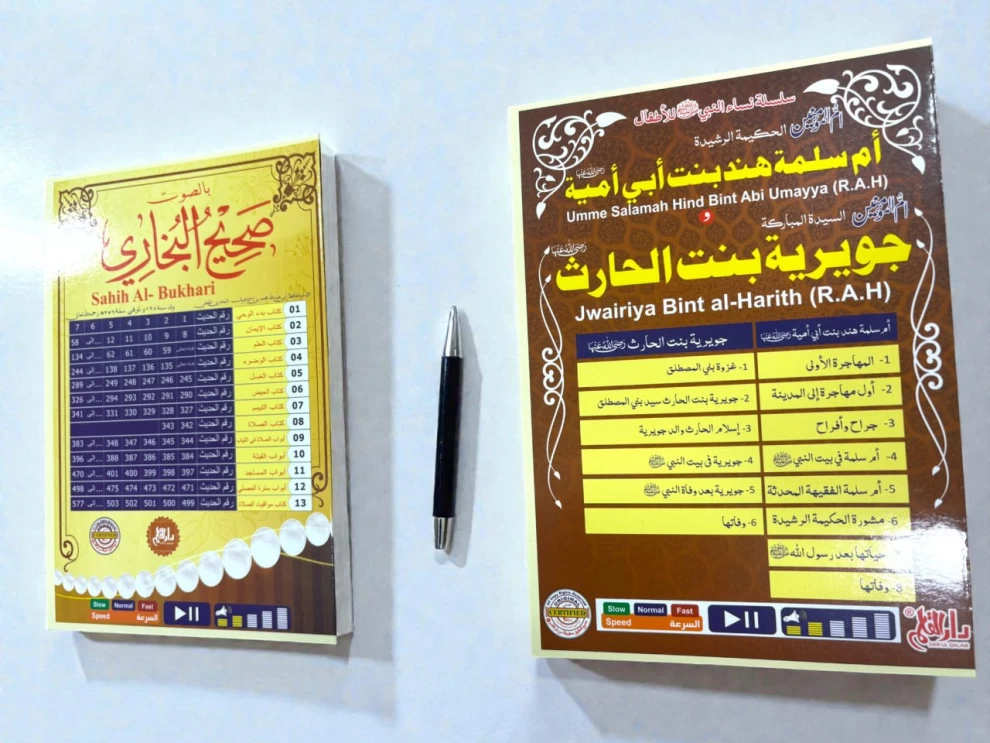 بالصوت
صحيح البخاري
Sahih Al- Bukhari
01 كتاب بدء الوحي رقم الحديث 1 2 3 4 5 6 7
02 كتاب الإيمان رقم الحديث 8 9 10 11 12 ...إلى 58
03 كتاب العلم رقم الحديث 59 60 61 62 ...إلى 134
04 كتاب الوضوء رقم الحديث 135 136 137 138 ...إلى 244
05 كتاب الغسل رقم الحديث 245 246 247 248 249 ...إلى 289
06 كتاب الحيض رقم الحديث 290 291 292 293 294 ...إلى 326
07 كتاب التيمم رقم الحديث 327 328 329 330 331 ...إلى 341
08 كتاب الصلاة رقم الحديث 342 343
09 ابواب الصلاة في الثياب رقم الحديث 344 345 346 347 348 ...إلى 383
10 ابواب القبلة رقم الحديث 384 385 386 387 388 ...إلى 396
11 ابواب المساجد رقم الحديث 397 398 399 400 401 ...إلى 470
12 ابواب سترة المصلى رقم الحديث 471 472 473 474 475 ...إلى 498
13 كتاب مواقيت الصلاة رقم الحديث 499 500 501 502 503 ...إلى 577
CERTIFIED
دار القلم
Slow Normal Fast
Speed السرعة
سلسلة نساء النبي ﷺ للأطفال
أم المؤمنين الحكيمة الرشيدة
أم سلمة هند بنت أبي أمية رضي الله عنها
Umme Salamah Hind Bint Abi Umayya (R.A.H)
و
أم المؤمنين السيدة المباركة
جويرية بنت الحارث رضي الله عنها
Jwairiya Bint al-Harith (R.A.H)
أم سلمة هند بنت أبي أمية رضي الله عنها
1- المهاجرة الأولى
2- أول مهاجرة إلى المدينة
3- جراح وأفراح
4- أم سلمة في بيت النبي ﷺ
5- أم سلمة الفقيهة المحدثة
6- مشورة الحكيمة الرشيدة
حياتها بعد رسول الله ﷺ
8- وفاتها
جويرية بنت الحارث رضي الله عنها
1- غزوة بني المصطلق
2- جويرية بنت الحارث سيد بني المصطلق
3- إسلام الحارث والد جويرية
4- جويرية في بيت النبي ﷺ
5- جويرية بعد وفاة النبي ﷺ
6- وفاتها
ORIGINAL
CERTIFIED
Slow Normal Fast
Speed السرعة
دار القلم
DAR UL QALAM